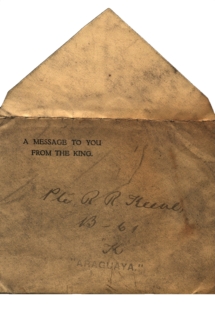 A MESSAGE TO YOU
FROM THE KING.
Pte R. R. Steeve
13-61
"ARAGUAYA."